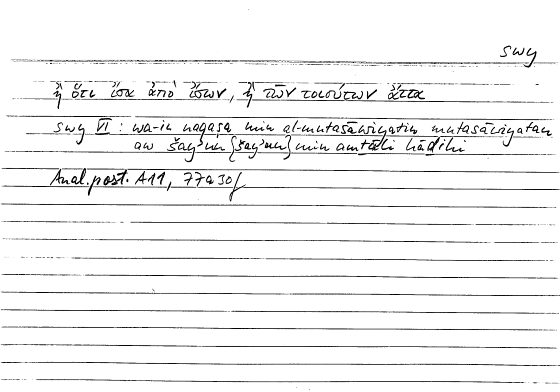 swy
ἢ ὅτι ἴσα ἀπὸ ἴσων, ἢ τῶν τοιούτων ἄττα
swy VI : wa-in naqaṣa min al-mutasāwiyatin mutasāwiyatan
aw šayʾun {šayʾun} min amṯāli hāḏihi
Anal. post. A 11, 77a30f